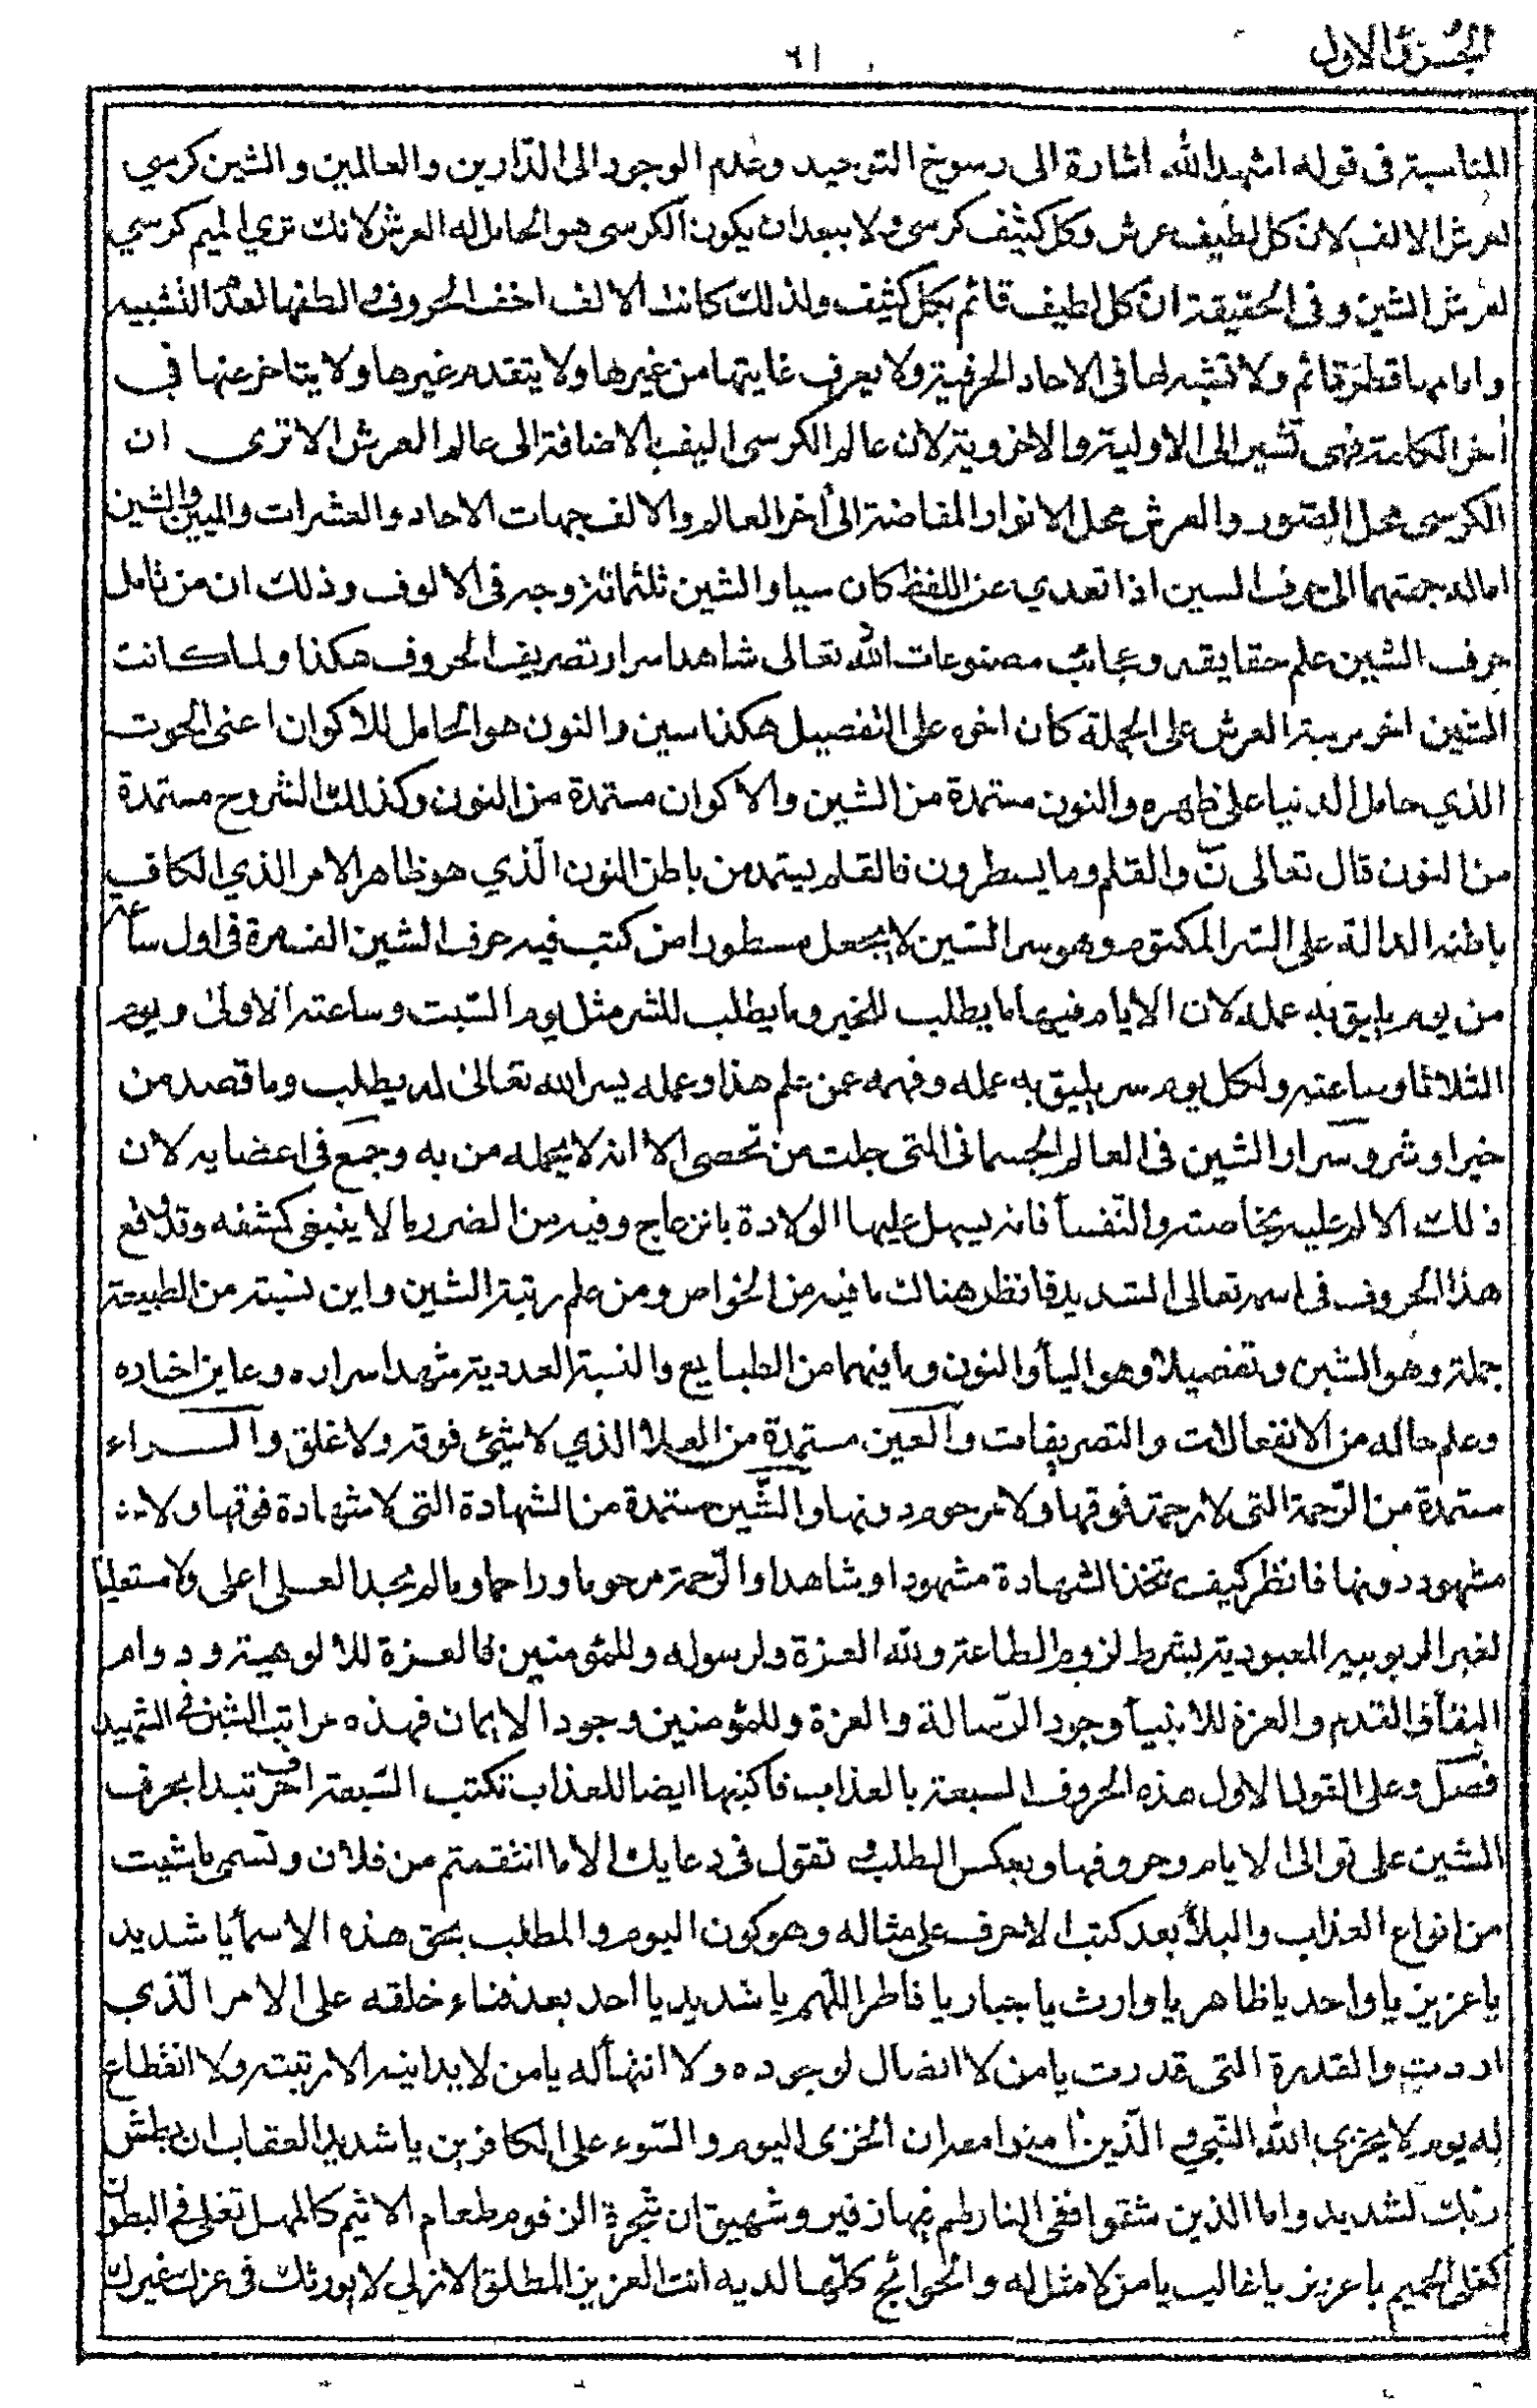 الجزء الاول
٦١
المناسبة فى قوله اشهد الله اشارة الى رسوخ التوحيد وعدم الوجود الى الدّارين والعالمين والشين كرسي
لعرش الالف لان كل لطيف عرش وكل كثيف كرسى ولا يبعد ان يكون الكرسى هو الحامل له العرش لانك ترى الميم كرسي
لعرش الشين وفى الحقيقة ان كل لطيف قائم بكل كثيف ولذلك كانت الالف اخف الحروف والطفها لعدم التشبيه
وامامها قطر قائم ولا تشبه لها فى الاحاد الحرفية ولا يعرف غايتها من غيرها ولا يتقدم غيرها ولا يتاخر عنها فى
اخر الكلمة فهى تشير الى الاولية والاخروية لان عالم الكرسى اليف بالاضافة الى عالم العرش الا ترى ان
الكرسى محل الصور والعرش محل الانوار المفاضة الى أخر العالم والالف جهات الاحاد والعشرات والميين والشين
اماله جهتهما الى حرف السين اذا تعدي عن اللفظ كان سيا والشين ثلثمائة وجه فى الالوف وذلك ان من تامل
حرف الشين علم حقايقه وعجائب مصنوعات الله تعالى شاهد اسرار تصريف الحروف هكذا ولما كانت
الشين اخر مرتبة العرش على الجملة كان اخره على التفصيل هكذا سين والنون هو الحامل للاكوان اعنى الحوت
الذي حامل الدنيا على ظهره والنون مستمدة من الشين والاكوان مستمدة من النون وكذلك الشروح مستمدة
من النون قال تعالى نٓ والقلم وما يسطرون فالقلم يستمد من باطن النون الّذي هو ظاهر الامر الذي الكاف
باطنه الدالة على السّر المكتوم وهو سر الشين لا يجعل مسطورا من كتب فيه حرف الشين الف مرة فى اول ساعة
من يوم يليق به عمله لان الايام فيها ما يطلب للخير وما يطلب للشر مثل يوم السّبت وساعته الاولى ويوم
الثلاثا وساعته ولكل يوم سر يليق به عمله وفهمه عمن علم هذا وعمله يسر الله تعالى له يطلب وما قصد من
خير او شر وسرار الشين فى العالم الجسمانى التى جلت من تحصى الا انه لا يحمله من به وجمع فى اعضايه لان
ذلك الالم عليه بخاصته والنّفسأ فانه يسهل عليها الولادة بانزعاج وفيه من الضرر ما لا ينبغى كشفه وقد وقع
هذا الحروف فى اسمه تعالى الشديد فانظر هنالك ما فيه من الخواص ومن علم رتبة الشين واين نسبته من الطبيعة
جملة وهو الشين وتفصيلا وهو اليأ والنون وما بينهما من الطبايع والنسبة العددية شهد اسراره وعاين اخباره
وعلم حاله من الانفعالات والتصريفات والعين مستمدة من العلا الذي لا شئ فوقه ولا غلق والـــراء
مستمدة من الرّحمة التى لا رحمة فوقها ولا مرحوم دونها والشّين مستمدة من الشهادة التى لا شهادة فوقها ولا
مشهود دونها فانظر كيف تتخذ الشهادة مشهودا وشاهدا والرّحمة مرحوما وراحما وما لم يجد العلى اعلى ولا مستعليا
لغير الربوبيه المعبودية بشرط لزوم الطاعة ولله العزة ولرسوله وللمؤمنين فالعزة للالوهية ودوام
البقأ والقدم والعزة للانبيأ وجود الرّسالة والعزة وللمؤمنين وجود الايمان فهذه مراتب الشين فى الشهيد
فصل وعلى القول الاول هذه الحروف السبعة بالعذاب فاكتبها ايضا للعذاب تكتب السّبعة احرف تبدا بحرف
الشين على توالى الايام وحروفها وبعكس المطلب تقول فى دعايك الا ما انتقمتم من فلان وتسمى ما شيت
من انواع العذاب والبلأ بعد كتب الاحرف على مثاله وهو كون اليوم والمطلب بحق هذه الاسمأ يا شديد
يا عزيز يا واحد يا ظاهر يا وارث يا جبار يا فاطر اللّهم يا شديد يا احد بعد فناء خلقه على الامر الّذي
اردت والقدرة التى قدرت يا من لا انفصال لوجوده ولا انتهأ له يا من لا يدانيه الا رتبته ولا انقطاع
له يوم لا يخزي الله النّبي و الّذين أمنوا معه ان الخزى اليوم والسّوء على الكافرين يا شديد العقاب ان بطش
ربّك لشديد واما الذين شقوا ففى النار لهم فيها زفير وشهيق ان شجرة الزقوم طعام الاثيم كالمهل تغلى فى البطون
كغلى الحميم يا عزيز يا غالب يا من لا مثل له والحوائج كلّها لديه انت العزيز المطلق الازلي لا يورثك فى عزك غيرك